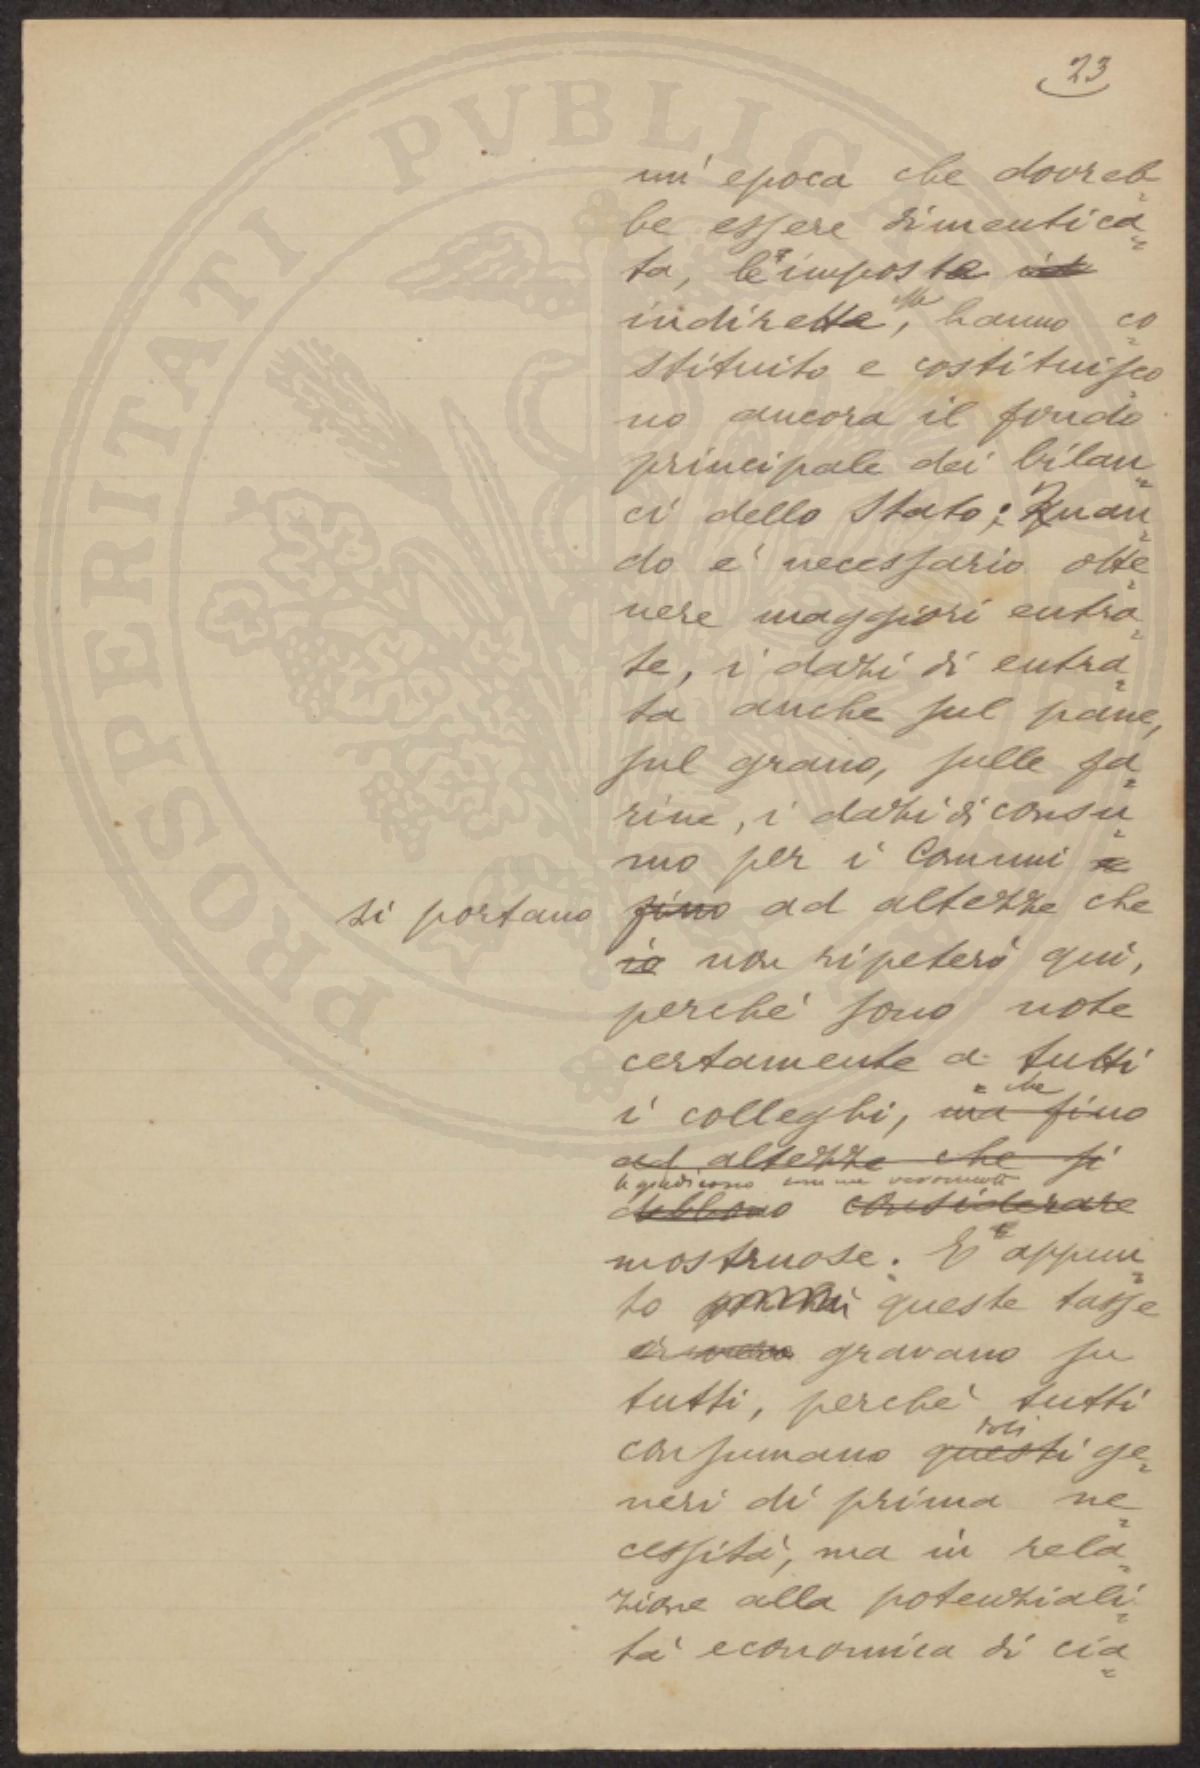 23
un' epoca che dovreb=
be essere dimentica=
ta, le imposte
indirette, hanno co=
stituito e costituisco=
no ancora il fondo
principale dei bilan=
ci dello Stato; Quan=
do e' necessario otte=
nere maggiori entra=
te, i dazi di entra=
ta anche sul pane,
sul grano, sulle fa=
rine, i dazi di consu=
mo per i Comuni e
si portano fino ad altezze che
io non ripeterò qui,
perchè sono note
certamente a tutti
che
i colleghi, ma fino
ad altezze che si
debbono considerare
mostruose. E appun=
to queste tasse
gravano su
tutti, perchè tutti
consumano questi ge=
neri di prima ne=
cessità, ma in rela=
zione alla potenziali=
tà economica di cia=
PROSPERITATI PVBLICAE